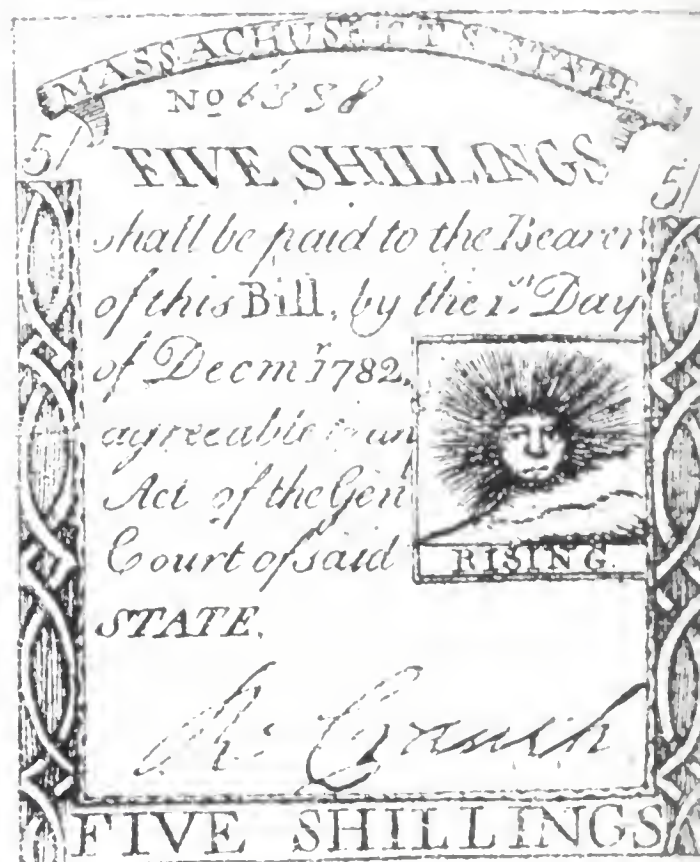 MASSACHUSETTS STATE
No 6358
5/ FIVE SHILLINGS 5/
shall be paid to the Bearer
of this Bill, by the 1st Day
of Decmr 1782,
agreeable to an
Act of the Gen
Court of said
STATE.
RISING.
R: Cranch
FIVE SHILLINGS